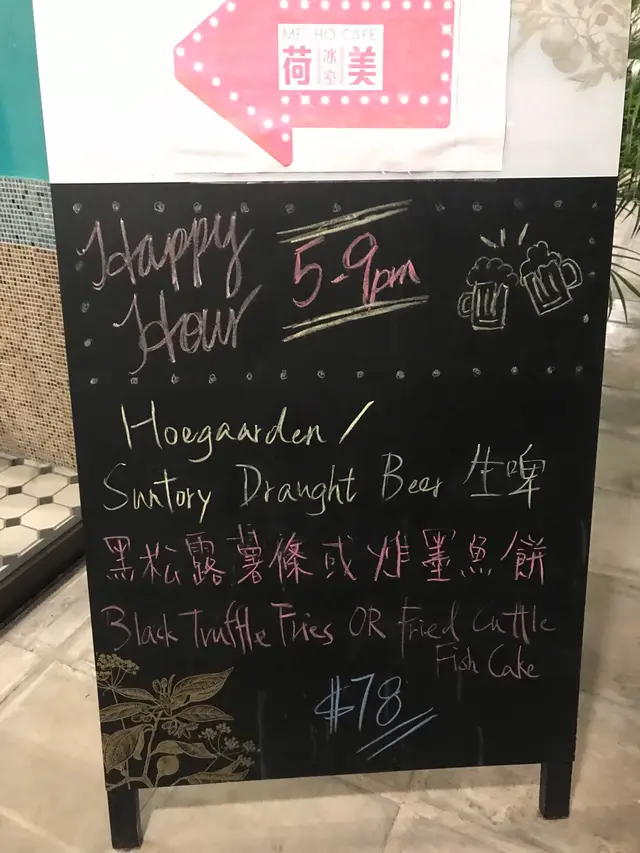 MEI HO CAFE
荷 冰室 美
Happy
Hour
5-9pm
Hoegaarden /
Suntory Draught Beer 生啤
黑松露薯條或炸墨魚餅
Black Truffle Fries OR Fried Cuttle
Fish Cake
$78